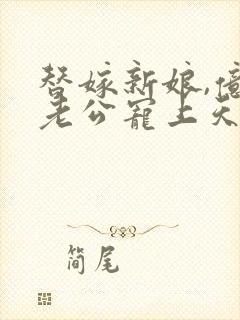 替嫁新娘,億
老公寵上天
簡尾